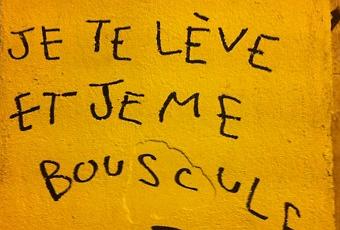 JE TE LÈVE
ET JE ME
BOUSCULE